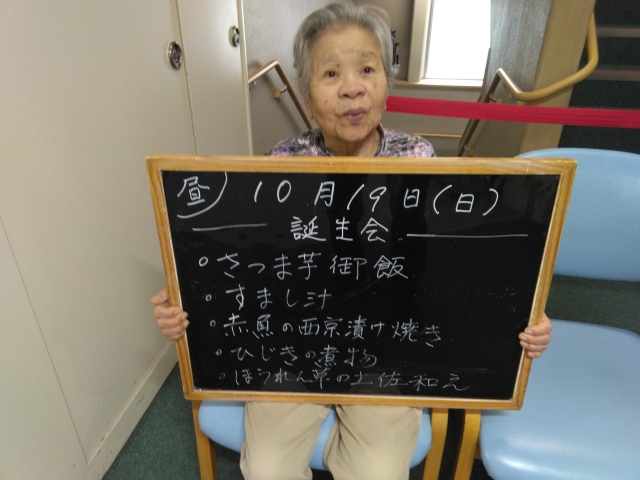 昼) 10月19日(日)
誕生会
。さつま芋御飯
。すまし汁
。赤魚の西京漬け焼き
。ひじきの煮物
。ほうれん草の土佐和え